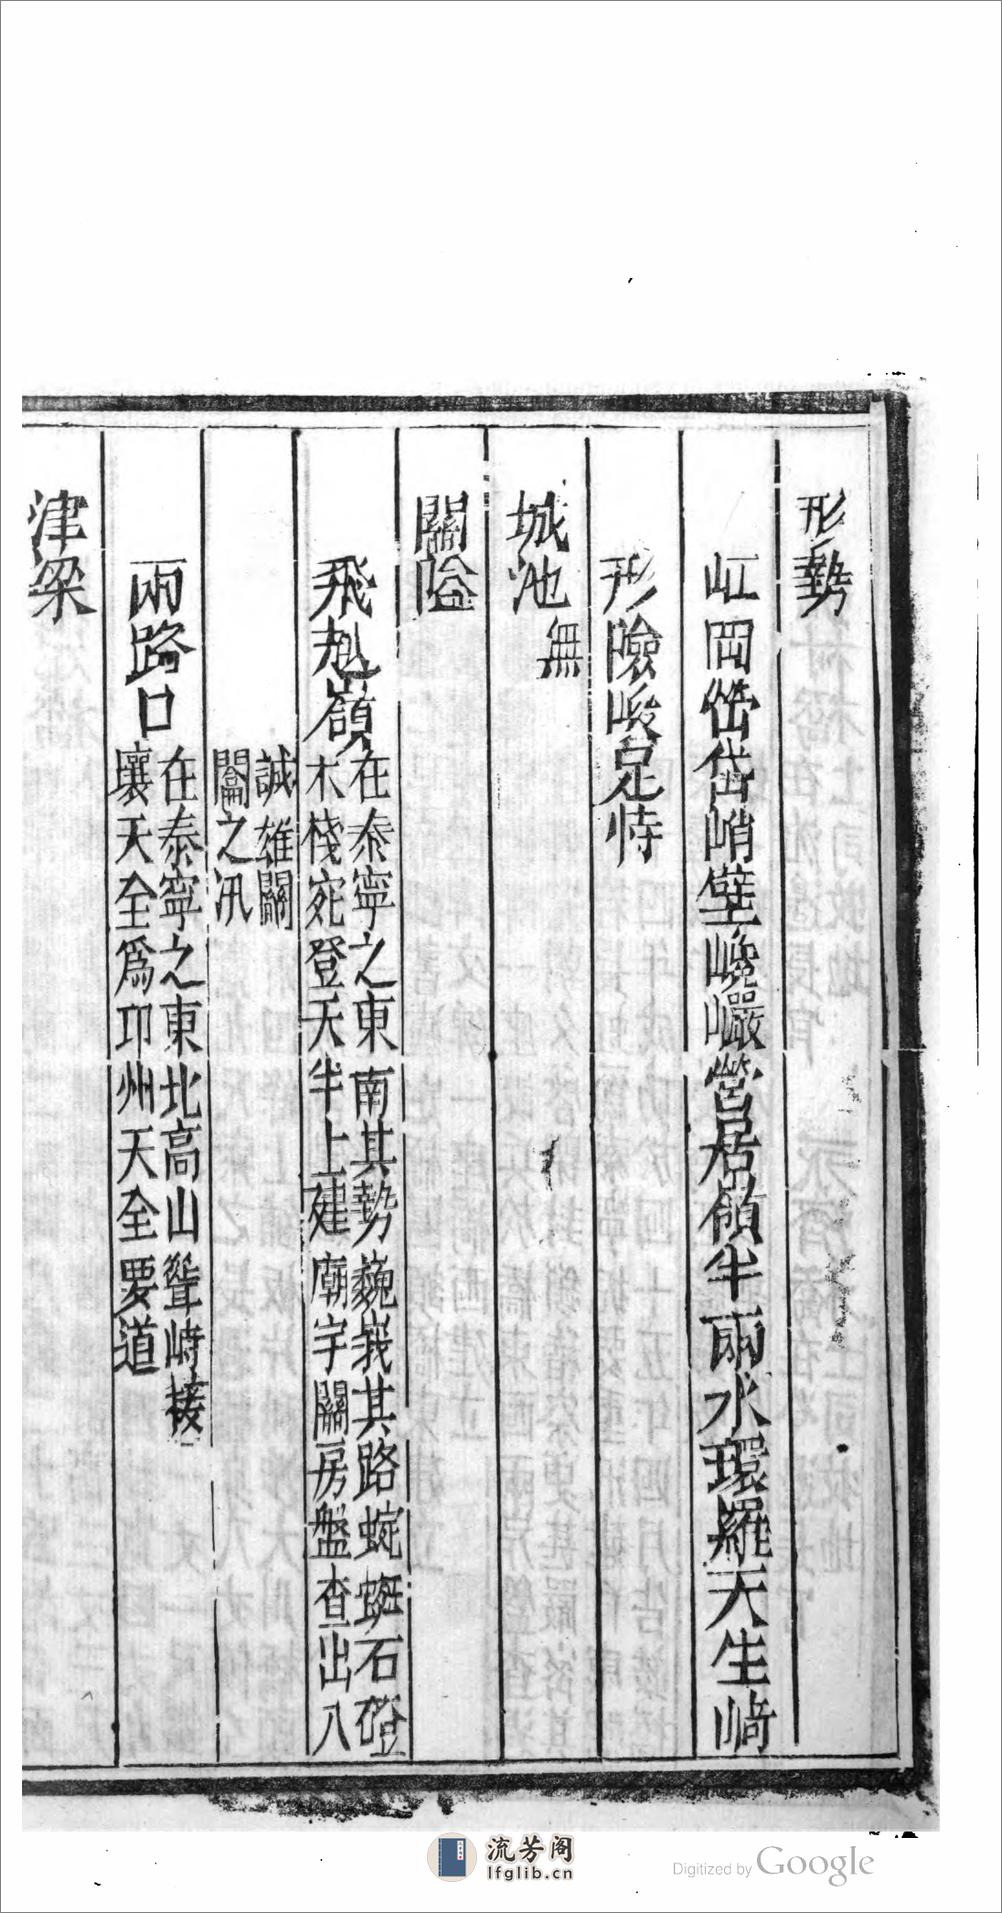 形勢
屸岡岧岱峭壁巉巖營居嶺半兩水環羅天生崎
形險峻足恃
城池無
關隘
飛越嶺在泰寧之東南其勢巍峩其路蜿蜒石磴
木棧宛登天半上建廟宇關房盤查出入
誠雄關
闔之汛
兩路口在泰寧之東北高山聳峙接
壤天全為邛州天全要道
津梁
流芳阁
lfglib.cn
Digitized by Google